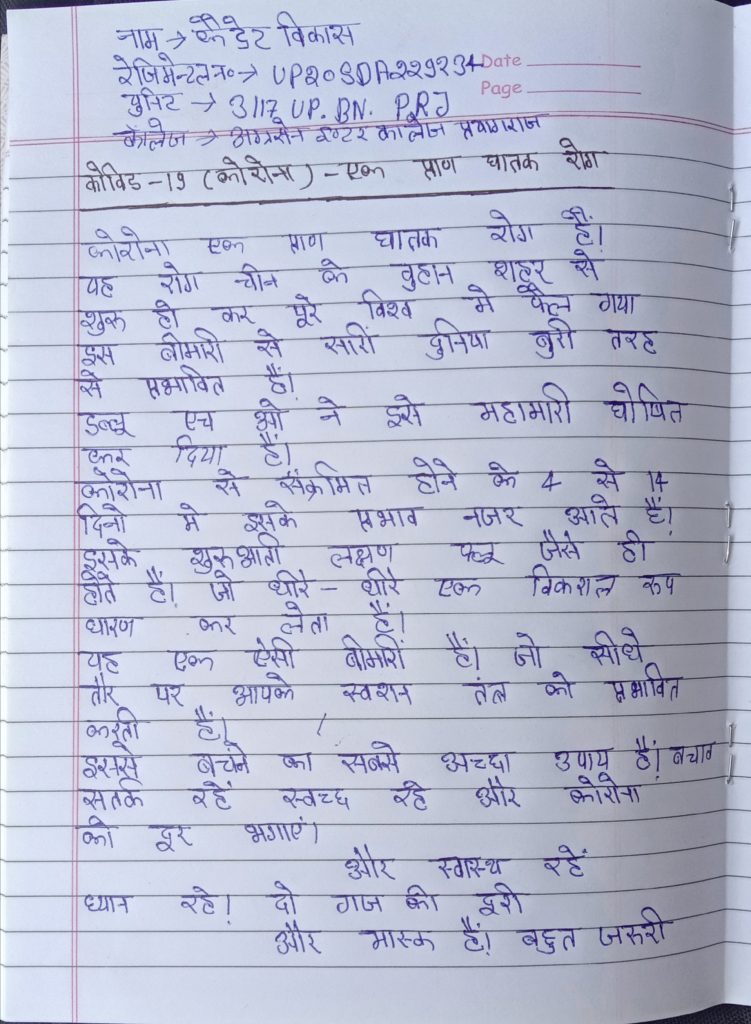 नाम → कैडेट विकास
रेजिमेन्टल न० → UP20SDA229234
Date
युनिट → 3/17 UP. BN. PRJ
Page
कॉलेज → अग्रसेन इण्टर कालेज प्रयागराज
कोविड -19 (कोरोना) - एक प्राण घातक रोग
कोरोना एक प्राण घातक रोग हैं।
यह रोग चीन के वुहान शहर से
शुरू हो कर पूरे विश्व मे फैल गया
इस बीमारी से सारी दुनिया बुरी तरह
से प्रभावित हैं।
डब्लू एच ओ ने इसे महामारी घोषित
कर दिया हैं।
कोरोना से संक्रमित होने के 4 से 14
दिनो मे इसके प्रभाव नजर आते हैं।
इसके शुरूआती लक्षण फ्लू जैसे ही
होते हैं। जो धीरे - धीरे एक विकराल रूप
धारण कर लेता हैं।
यह एक ऐसी बीमारी हैं। जो सीधे
तौर पर आपके स्वशन तंत्र को प्रभावित
करती हैं।
इससे बचने का सबसे अच्छा उपाय हैं। बचाव
सतर्क रहें स्वच्छ रहे और कोरोना
को दूर भगाएं।
और स्वास्थ रहें
ध्यान रहे। दो गज की दूरी
और मास्क हैं। बहुत जरुरी